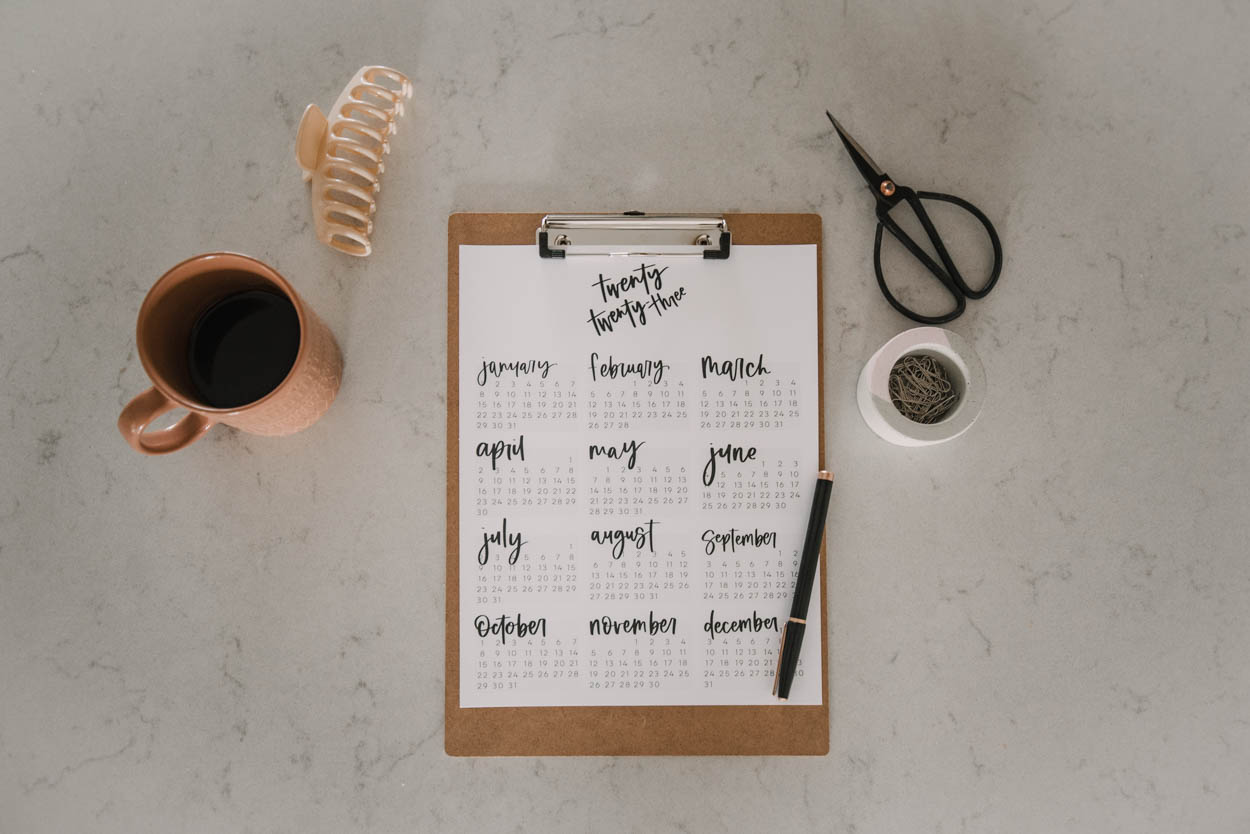 twenty
twenty-three
january
2 3 4 5 6 7
8 9 10 11 12 13 14
15 16 17 18 19 20 21
22 23 24 25 26 27 28
29 30 31
february
1 2 3 4
5 6 7 8 9 10 11
12 13 14 15 16 17 18
19 20 21 22 23 24 25
26 27 28
march
1 2 3 4
5 6 7 8 9 10 11
12 13 14 15 16 17 18
19 20 21 22 23 24 25
26 27 28 29 30 31
april
1
2 3 4 5 6 7 8
9 10 11 12 13 14 15
16 17 18 19 20 21 22
23 24 25 26 27 28 29
30
may
2 3 4 5 6
7 8 9 10 11 12 13
14 15 16 17 18 19 20
21 22 23 24 25 26 27
28 29 30 31
june
1 2 3
5 6 7 8 9 10
12 13 14 15 16 17
18 19 20 21 22 23 24
25 26 27 28 29 30
july
1
3 5 6 7 8
9 10 11 12 13 14 15
16 17 18 19 20 21 22
23 24 25 26 27 28 29
30 31
august
2 3 4 5
6 7 8 9 10 11 12
13 14 15 16 17 18 19
20 21 22 23 24 25 26
27 28 29 30 31
September
1 2
3 4 5 6 7 8
10 11 12 13 14 15
17 18 19 20 21 22
24 25 26 27 28 29
October
1 2 3 4 5 6 7
8 9 10 11 12 13 14
15 16 17 18 19 20 21
22 23 24 25 26 27 28
29 30 31
november
1 2 3 4
5 6 7 8 9 10 11
12 13 14 15 16 17 18
19 20 21 22 23 24 25
26 27 28 29 30
december
3 4 5 6 7
10 11 12 13 14
17 18 19 20 21
24 25 26 27 28
31